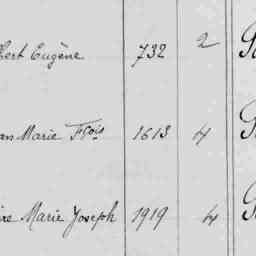 bert Eugène 732 2
Marie Fçois 1613 4
Marie Joseph 1919 4